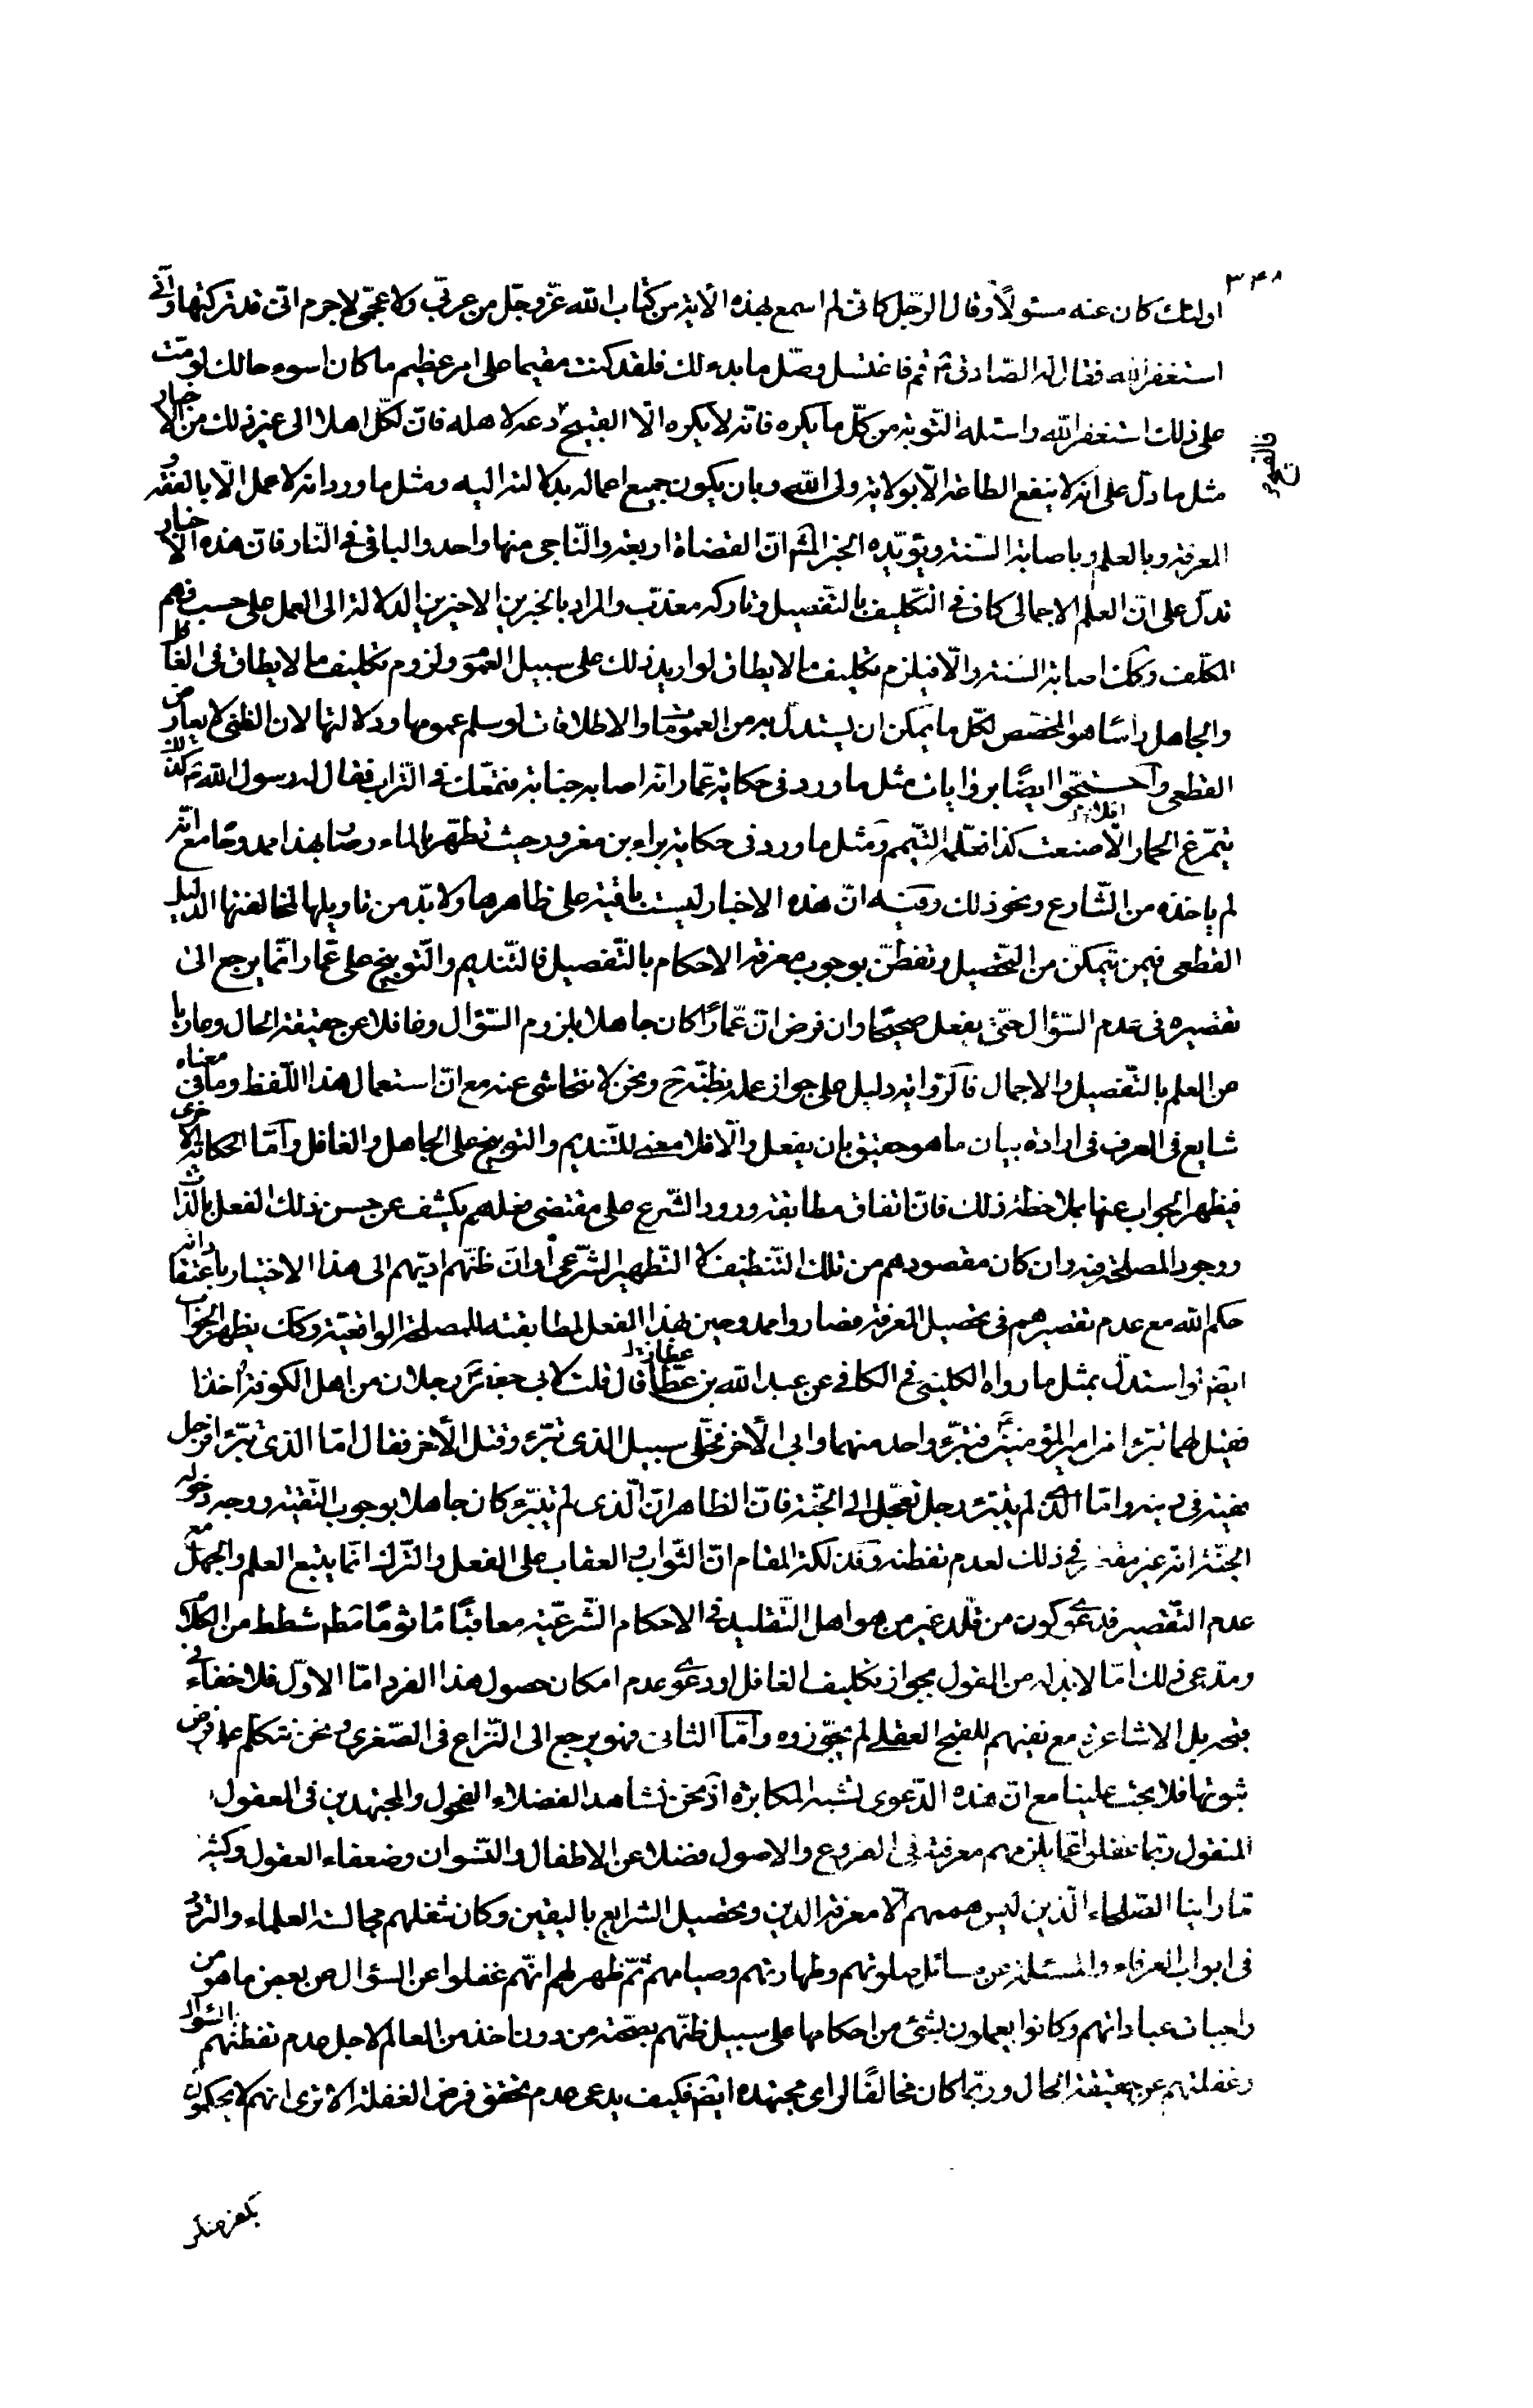 ٣٤٨
اولئك كان عنه مسئولًا وقال الرّجل كانّى لم اسمع بهذه الأية من كتاب الله عزّ وجلّ من عربّى ولا عجمّى لا جرم انّى قد تركتها وانّى
استغفر الله فقال له الصّادق ع قم فاغتسل وصّل ما بدء لك فلقد كنت مقيما على امر عظيم ما كان اسوء حالك لو متّ
على ذلك استغفر الله واسئله التّوبة من كلّ ما يكره فانّه لا يكره الّا القبيح دعه لاهله فانّ لكلّ اهلا الى غير ذلك من الاخبار
مثل ما دلّ على انه لا ينفع الطاعة الّا بولاية ولى الله وبان يكون جميع اعماله بدلالته اليه ومثل ما ورد انه لا عمل الّا بالفقه و
المعرفة وبالعلم وباصابة السّنة ويؤيّده الخبر المشهور انّ القضاة اربعة والنّاجى منها واحد والباقى فى النّار فانّ هذه الاخبار
تدلّ على انّ العلم الاجمالى كاف فى التّكليف بالتّفصيل وتاركه معذّب والمراد بالخبرين الاخيرين الدلالة الى العمل على حسب فهم
المكلّف وكك اصابة السّنة والّا فيلزم تكليف ما لا يطاق لو اريد ذلك على سبيل العموم ولزوم تكليف ما لا يطاق فى الغافل
والجاهل راسًا هو المخصّص لكلّ ما يمكن ان يستدلّ به من العمومات والاطلاقات لو سلم عمومها ودلالتها لان الظنى لا يعارض
القطعى واحتجّوا ايضًا بروايات مثل ما ورد فى حكاية عمّار انه اصابه جنابة فتمعّك فى التّراب فقال له رسول الله ص كذلك
يتمّرغ الحمار افلا صنعت كذا فعلّمه التّيمم ومثل ما ورد فى حكاية براء بن معرور حيث تطهّر بالماء وصار بهذا ممدوحًا مع انّه
لم ياخذه من الشّارع ونحو ذلك وفيه انّ هذه الاخبار ليست باقية على ظاهرها ولا بدّ من تاويلها لمخالفتها الدّليل
القطعى فيمن يتمكّن من التّحصيل وتفطّن بوجوب معرفة الاحكام بالتّفصيل فالتّنديم والتّوبيخ على عمّار انّما يرجع الى
تقصيره فى عدم السّؤال حتّى يفعل صحيحًا وان فرض انّ عمّارًا كان جاهلا بلزوم السّؤال وغافلا عن حقيقة الحال وعاريا
عن العلم بالتّفصيل والاجمال فالرّواية دليل على جواز عمله بظنّه ح ونحن لا نتحاشى عنه مع انّ استعمال هذا اللّفظ وما فى معناه
شايع فى العرف فى ارادة بيان ما هو حقيق بان يفعل والّا فلا معنى للتّنديم والتوبيخ على الجاهل والغافل وامّا الحكاية الاخرى
فيظهر الجواب عنها بملاحظة ذلك فانّ اتفاق مطابقة ورود الشّرع على مقتضى فعلهم يكشف عن حسن ذلك الفعل بالّذات
ووجود المصلحة فيه وان كان مقصودهم من تلك التّنظيف لا التّطهير الشّرعى او انّ ظنّهم ادّيهم الى هذا الاختيار باعتقاد انه
حكم الله مع عدم تقصيرهم فى تحصيل المعرفة فصاروا ممدوحين بهذا الفعل لمطابقته للمصلحة الواقعيّة وكك يظهر الجواب
ايضًا لو استدلّ بمثل ما رواه الكلينى فى الكافى عن عبد الله بن عطا قال قلت لابى جعفر ع رجلان من اهل الكوفة اخذا
فقيل لهما تبرّءا من امير المؤمنين ع فتبرّء واحد منهما وابى الأخر فخلّى سبيل الذى تبرّء وقتل الأخر فقال امّا الذى تبرّء فرجل
فقيه فى دينه وامّا الّذى لم يتبرّء رجل تعجّل الى الجنّة فانّ الظاهر انّ الّذى لم يتبرّء كان جاهلا بوجوب التّقية ووجه دخوله
الجنّة انه غير مقصّر فى ذلك لعدم تفطنه وفذلكة المقام انّ الثّواب والعقاب على الفعل والتّرك انّما يتبع العلم والجهل مع
عدم التّقصير فدعوى كون من قلّد غير من هو اهل التّقليد فى الاحكام الشّرعيّة معاقبًا مأثومًا مطلقا شطط من الكلام
ومدّعى ذلك امّا لا بدّ له من القول بجواز تكليف الغافل او دعوى عدم امكان حصول هذا الفرد امّا الاوّل فلا خفاء فى
بل الاشاعرة مع نفيهم للقبح العقلى لم يجوّزوه وامّا الثانى فهو يرجع الى النّزاع فى الصّغرى ونحن نتكلّم على فرض
ثبوتها فلا بحث علينا مع انّ هذه الدّعوى تشبه المكابرة اذ نحن نشاهد الفضلاء الفحول والمجتهدين فى المعقول
المنقول ربّما غفلوا عمّا يلزمهم معرفته فى الفروع والاصول فضلا عن الاطفال والنّسوان وضعفاء العقول وكثيرا
مّا راينا الصّلحاء الّذين ليس هممهم الّا معرفة الدين وتحصيل الشرايع باليقين وكان شغلهم مجالسة العلماء والتردّد
فى ابواب العرفاء والمسئلة عن مسائل صلوتهم وطهارتهم وصيامهم ثمّ ظهر لهم انّهم غفلوا عن السؤال عن بعض ما هو من
واجبات عباداتهم وكانوا يعملون بشئ من احكامها على سبيل ظنّهم بصّحته من دون اخذ من العالم لاجل عدم تفطنهم السّؤال
وغفلتهم عن حقيقة الحال وربّما كان مخالفًا لراى مجتهده ايضًا فكيف يدعى عدم تحقق فرض الغفلة الا ترى انهم لا يحكمون
بكفر منكر